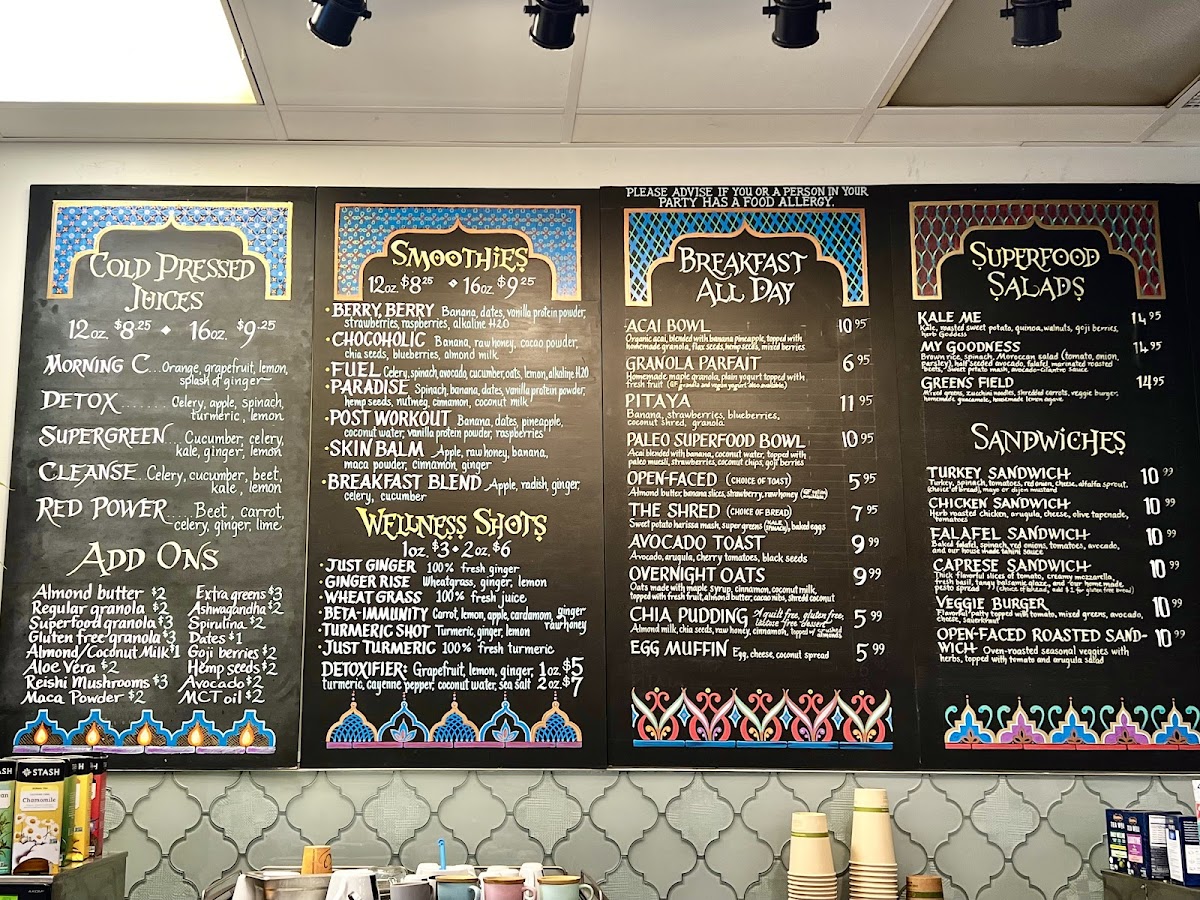 COLD PRESSED
JUICES
12 oz. $8.25 • 16 oz. $9.25
MORNING C... Orange, grapefruit, lemon,
splash of ginger
DETOX.......... Celery, apple, spinach,
turmeric, lemon
SUPERGREEN... Cucumber, celery,
kale, ginger, lemon
CLEANSE... Celery, cucumber, beet,
kale, lemon
RED POWER....... Beet, carrot,
celery, ginger, lime
ADD ONS
Almond butter $2
Regular granola $2
Superfood granola $3
Gluten free granola $3
Almond/Coconut Milk $1
Aloe Vera $2
Reishi Mushrooms $3
Maca Powder $2
Extra greens $3
Ashwagandha $2
Spirulina $2
Dates $1
Goji berries $2
Hemp seeds $2
Avocado $2
MCT oil $2
SMOOTHIES
12 oz. $8.25 • 16 oz. $9.25
• BERRY, BERRY Banana, dates, vanilla protein powder,
strawberries, raspberries, alkaline H20
• CHOCOHOLIC Banana, raw honey, cacao powder,
chia seeds, blueberries, almond milk
• FUEL Celery, spinach, avocado, cucumber, oats, lemon, alkaline H20
• PARADISE Spinach, banana, dates, vanilla protein powder,
hemp seeds, nutmeg, cinnamon, coconut milk
• POST WORKOUT Banana, dates, pineapple,
coconut water, vanilla protein powder, raspberries
• SKIN BALM Apple, raw honey, banana,
maca powder, cinnamon, ginger
• BREAKFAST BLEND Apple, radish, ginger,
celery, cucumber
WELLNESS SHOTS
1 oz. $3 • 2 oz. $6
• JUST GINGER 100% fresh ginger
• GINGER RISE Wheatgrass, ginger, lemon
• WHEAT GRASS 100% fresh juice
• BETA-IMMUNITY Carrot, lemon, apple, cardamom, ginger
raw honey
• TURMERIC SHOT Turmeric, ginger, lemon
• JUST TURMERIC 100% fresh turmeric
DETOXIFIER: Grapefruit, lemon, ginger, 1 oz. $5
turmeric, cayenne pepper, coconut water, sea salt 2 oz. $7
PLEASE ADVISE IF YOU OR A PERSON IN YOUR
PARTY HAS A FOOD ALLERGY.
BREAKFAST
ALL DAY
ACAI BOWL 10.95
Organic acai, blended with banana pineapple, topped with
homemade granola, flax seeds, hemp seeds, mixed berries
GRANOLA PARFAIT 6.95
Homemade maple granola, plain yogurt topped with
fresh fruit (GF granola and vegan yogurt also available)
PITAYA 11.95
Banana, strawberries, blueberries,
coconut shred, granola
PALEO SUPERFOOD BOWL 10.95
Acai blended with banana, coconut water, topped with
paleo muesli, strawberries, coconut chips, goji berries
OPEN-FACED (CHOICE OF TOAST) 5.95
Almond butter, banana slices, strawberry, raw honey
THE SHRED (CHOICE OF BREAD) 7.95
Sweet potato harissa mash, super greens (KALE, SPINACH), baked eggs
AVOCADO TOAST 9.99
Avocado, arugula, cherry tomatoes, black seeds
OVERNIGHT OATS 9.99
Oats made with maple syrup, cinnamon, coconut milk,
topped with fresh fruit, almond butter, cacao nibs, shredd coconut
CHIA PUDDING A guilt free, gluten free, lactose free dessert 5.99
Almond milk, chia seeds, raw honey, cinnamon, topped w/ crushed almonds
EGG MUFFIN Egg, cheese, coconut spread 5.99
SUPERFOOD
SALADS
KALE ME 14.95
Kale, roasted sweet potato, quinoa, walnuts, goji berries,
herb Goddess
MY GOODNESS 14.95
Brown rice, spinach, Moroccan salad (tomato, onion,
parsley) half seeded avocado, falafel, marinated roasted
beets, sweet potato mash, avocado-cilantro sauce
GREENS FIELD 14.95
Mixed greens, zucchini noodles, shredded carrots, veggie burger,
homemade guacamole, homemade lemon agave
SANDWICHES
TURKEY SANDWICH 10.99
Turkey, spinach, tomatoes, red onion, cheese, alfalfa sprout,
(choice of bread), mayo or dijon mustard
CHICKEN SANDWICH 10.99
Herb roasted chicken, arugula, cheese, olive tapenade,
tomatoes
FALAFEL SANDWICH 10.99
Baked falafel, spinach, red onions, tomatoes, avocado,
and our house made tahini sauce
CAPRESE SANDWICH 10.99
Thick flavorful slices of tomato, creamy mozzarella,
fresh basil, tangy balsamic glaze, and our homemade
pesto spread (choice of bread, add $1 for gluten free bread)
VEGGIE BURGER 10.99
Flavorful patty topped with tomato, mixed greens, avocado,
cheese, sauerkraut
OPEN-FACED ROASTED SAND- 10.99
WICH Oven-roasted seasonal veggies with
herbs, topped with tomato and arugula salad
STASH
Chamomile